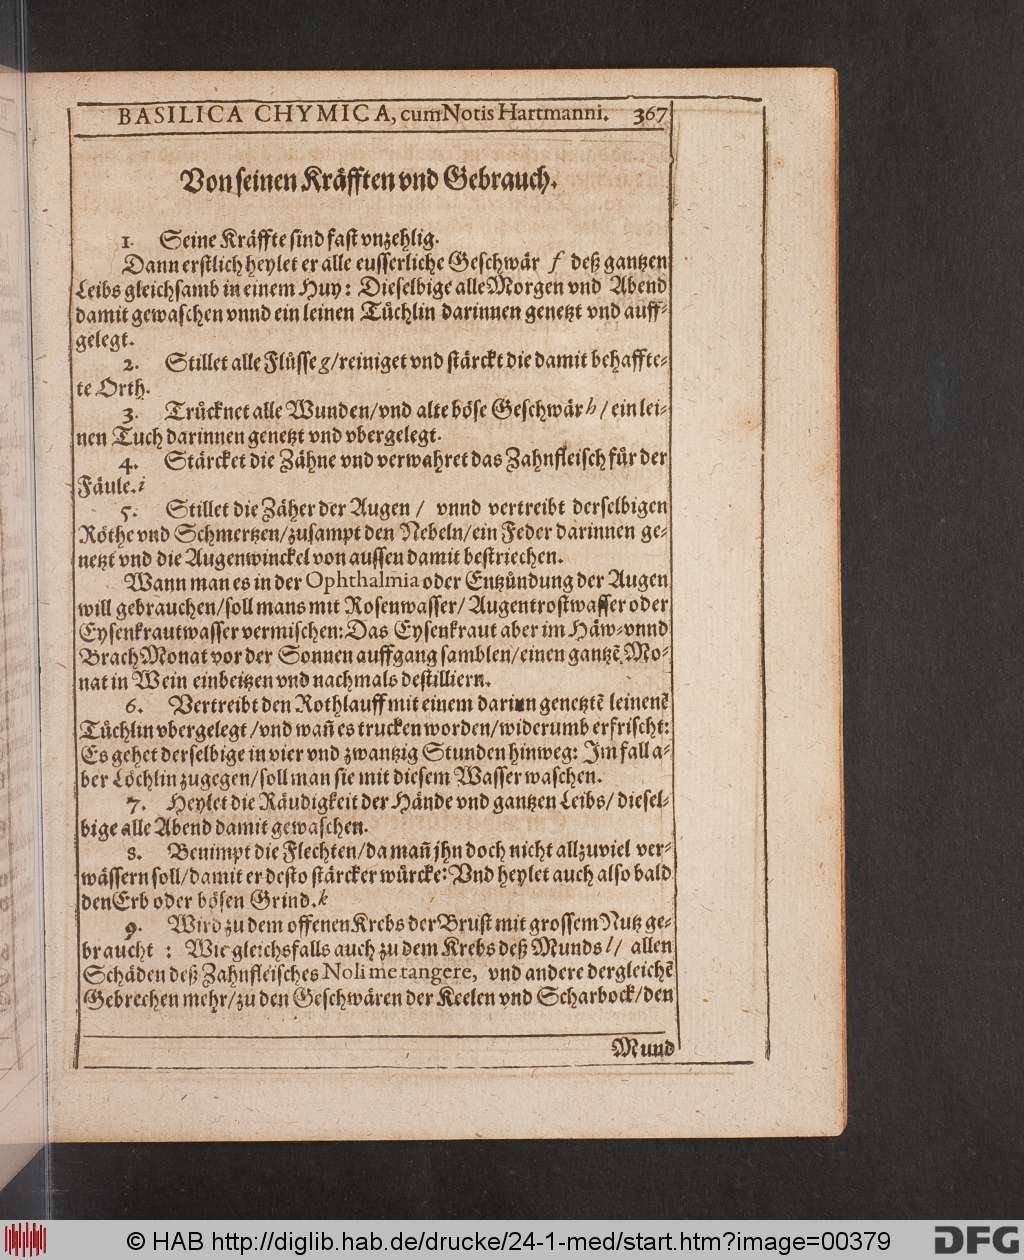 BASILICA CHYMICA, cum Notis Hartmanni. 367
Von seinen Kräfften vnd Gebrauch.
1. Seine Kräffte sind fast vnzehlig.
Dann erstlich heylet er alle eusserliche Geschwär f deß gantzen
Leibs gleichsamb in einem Huy: Dieselbige alle Morgen vnd Abend
damit gewaschen vnnd ein leinen Tüchlin darinnen genetzt vnd auff-
gelegt.
2. Stillet alle Flüsse g/ reiniget vnd stärckt die damit behaffte-
te Orth.
3. Trücknet alle Wunden/ vnd alte böse Geschwär h/ ein lei-
nen Tuch darinnen genetzt vnd vbergelegt.
4. Stärcket die Zähne vnd verwahret das Zahnfleisch für der
Fäule. i
5. Stillet die Zäher der Augen / vnnd vertreibt derselbigen
Röthe vnd Schmertzen/ zusampt den Nebeln/ ein Feder darinnen ge-
netzt vnd die Augenwinckel von aussen damit bestriechen.
Wann man es in der Ophthalmia oder Entzündung der Augen
will gebrauchen/ soll mans mit Rosenwasser/ Augentrostwasser oder
Eysenkrautwasser vermischen: Das Eysenkraut aber im Häw- vnnd
BrachMonat vor der Sonnen auffgang samblen/ einen gantzẽ Mo-
nat in Wein einbeitzen vnd nachmals destilliern.
6. Vertreibt den Rothlauff mit einem darinn genetztẽ leinenẽ
Tüchlin vbergelegt / vnd wañ es trucken worden/ widerumb erfrischt:
Es gehet derselbige in vier vnd zwantzig Stunden hinweg: Im fall a-
ber Löchlin zugegen/ soll man sie mit diesem Wasser waschen.
7. Heylet die Räudigkeit der Hände vnd gantzen Leibs/ diesel-
bige alle Abend damit gewaschen.
8. Benimpt die Flechten/ da mañ jhn doch nicht allzuviel ver-
wässern soll/ damit er desto stärcker würcke: Vnd heylet auch also bald
den Erb oder bösen Grind. k
9. Wird zu dem offenen Krebs der Brust mit grossem Nutz ge-
braucht : Wie gleichsfalls auch zu dem Krebs deß Munds l/ allen
Schäden deß Zahnfleisches Noli me tangere, vnd andere dergleichẽ
Gebrechen mehr/ zu den Geschwären der Keelen vnd Scharbock/ den
Mund
© HAB http://diglib.hab.de/drucke/24-1-med/start.htm?image=00379
DFG